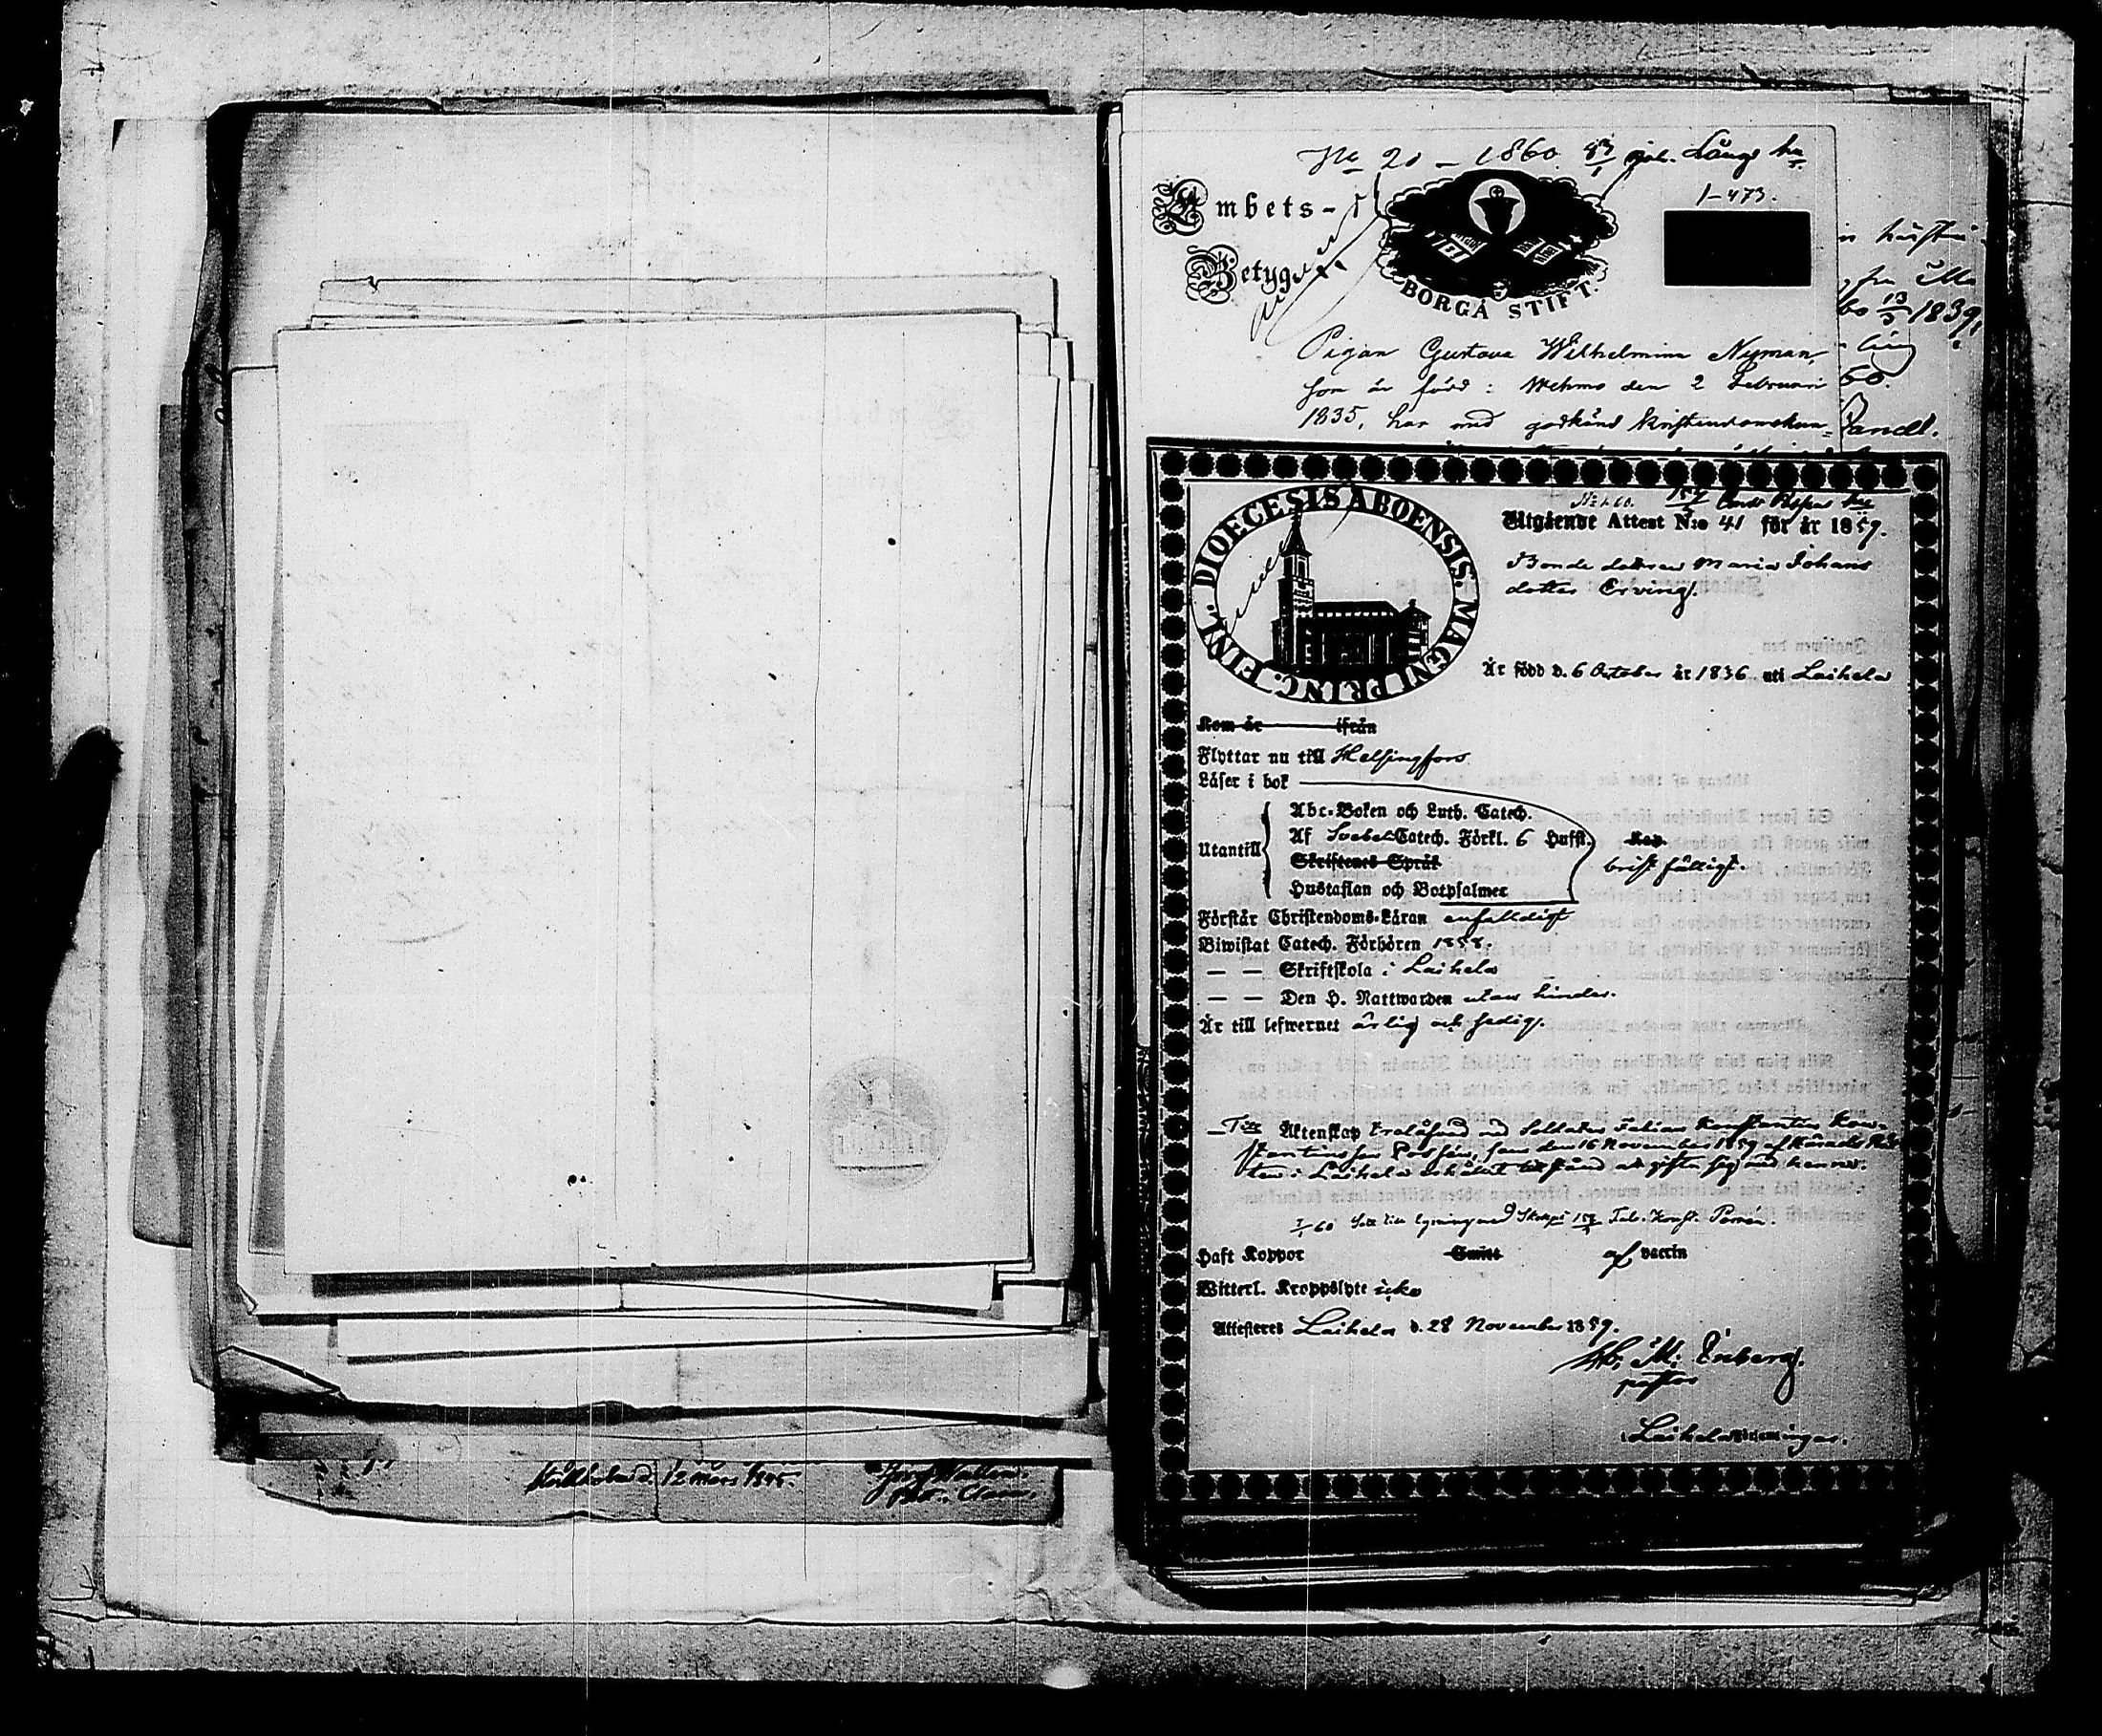 No 20 - 1860
1-473.
Embets-
Betyg
BORGÅ STIFT.
Pigan Gustava Wilhelmina Nyman,
som är född i Wehmo den 2 Februari
1835, har med godkänd kristendomskun-
1839,
60.
Kallholmd. 12 Mars 1845.
DIOECESIS ABOENSIS. MAGNI PRINC. FINL.
Utgående Attest N:o 41 för år 1859.
Bonde dottren Maria Johans
dotter Erving.
Är född d. 6 October år 1836 uti Laihela
Kom år ifrån
Flyttar nu till Helsingfors
Läser i bok
Utantill
Abc-Boken och Luth. Catech.
Af Svebel. Catech. Förkl. 6 Hufst.
Skriftenes Språk
Hustaflan och Botpsalmer
bristfälligt.
Förstår Christendoms-Läran enfalldigt
Biwistat Catech. Förhören 1858.
— — Skriftskola i Laihela
— — Den H. Nattwarden utan hinder.
Är till lefwernet ärlig och sedig.
Till Äktenskap trolåfvad med Soldaten Fabian Konstantin Kon-
stantinsson Possén, som den 16 November 1859 af Härads Rät-
ten i Laihela erhållit tillstånd at gifta sig med henne.
Haft Koppor Smitt af vaccin
Witterl. Kroppslyte icke
Attesteras Laihela d. 28 November 1859.
pastor
Laihela